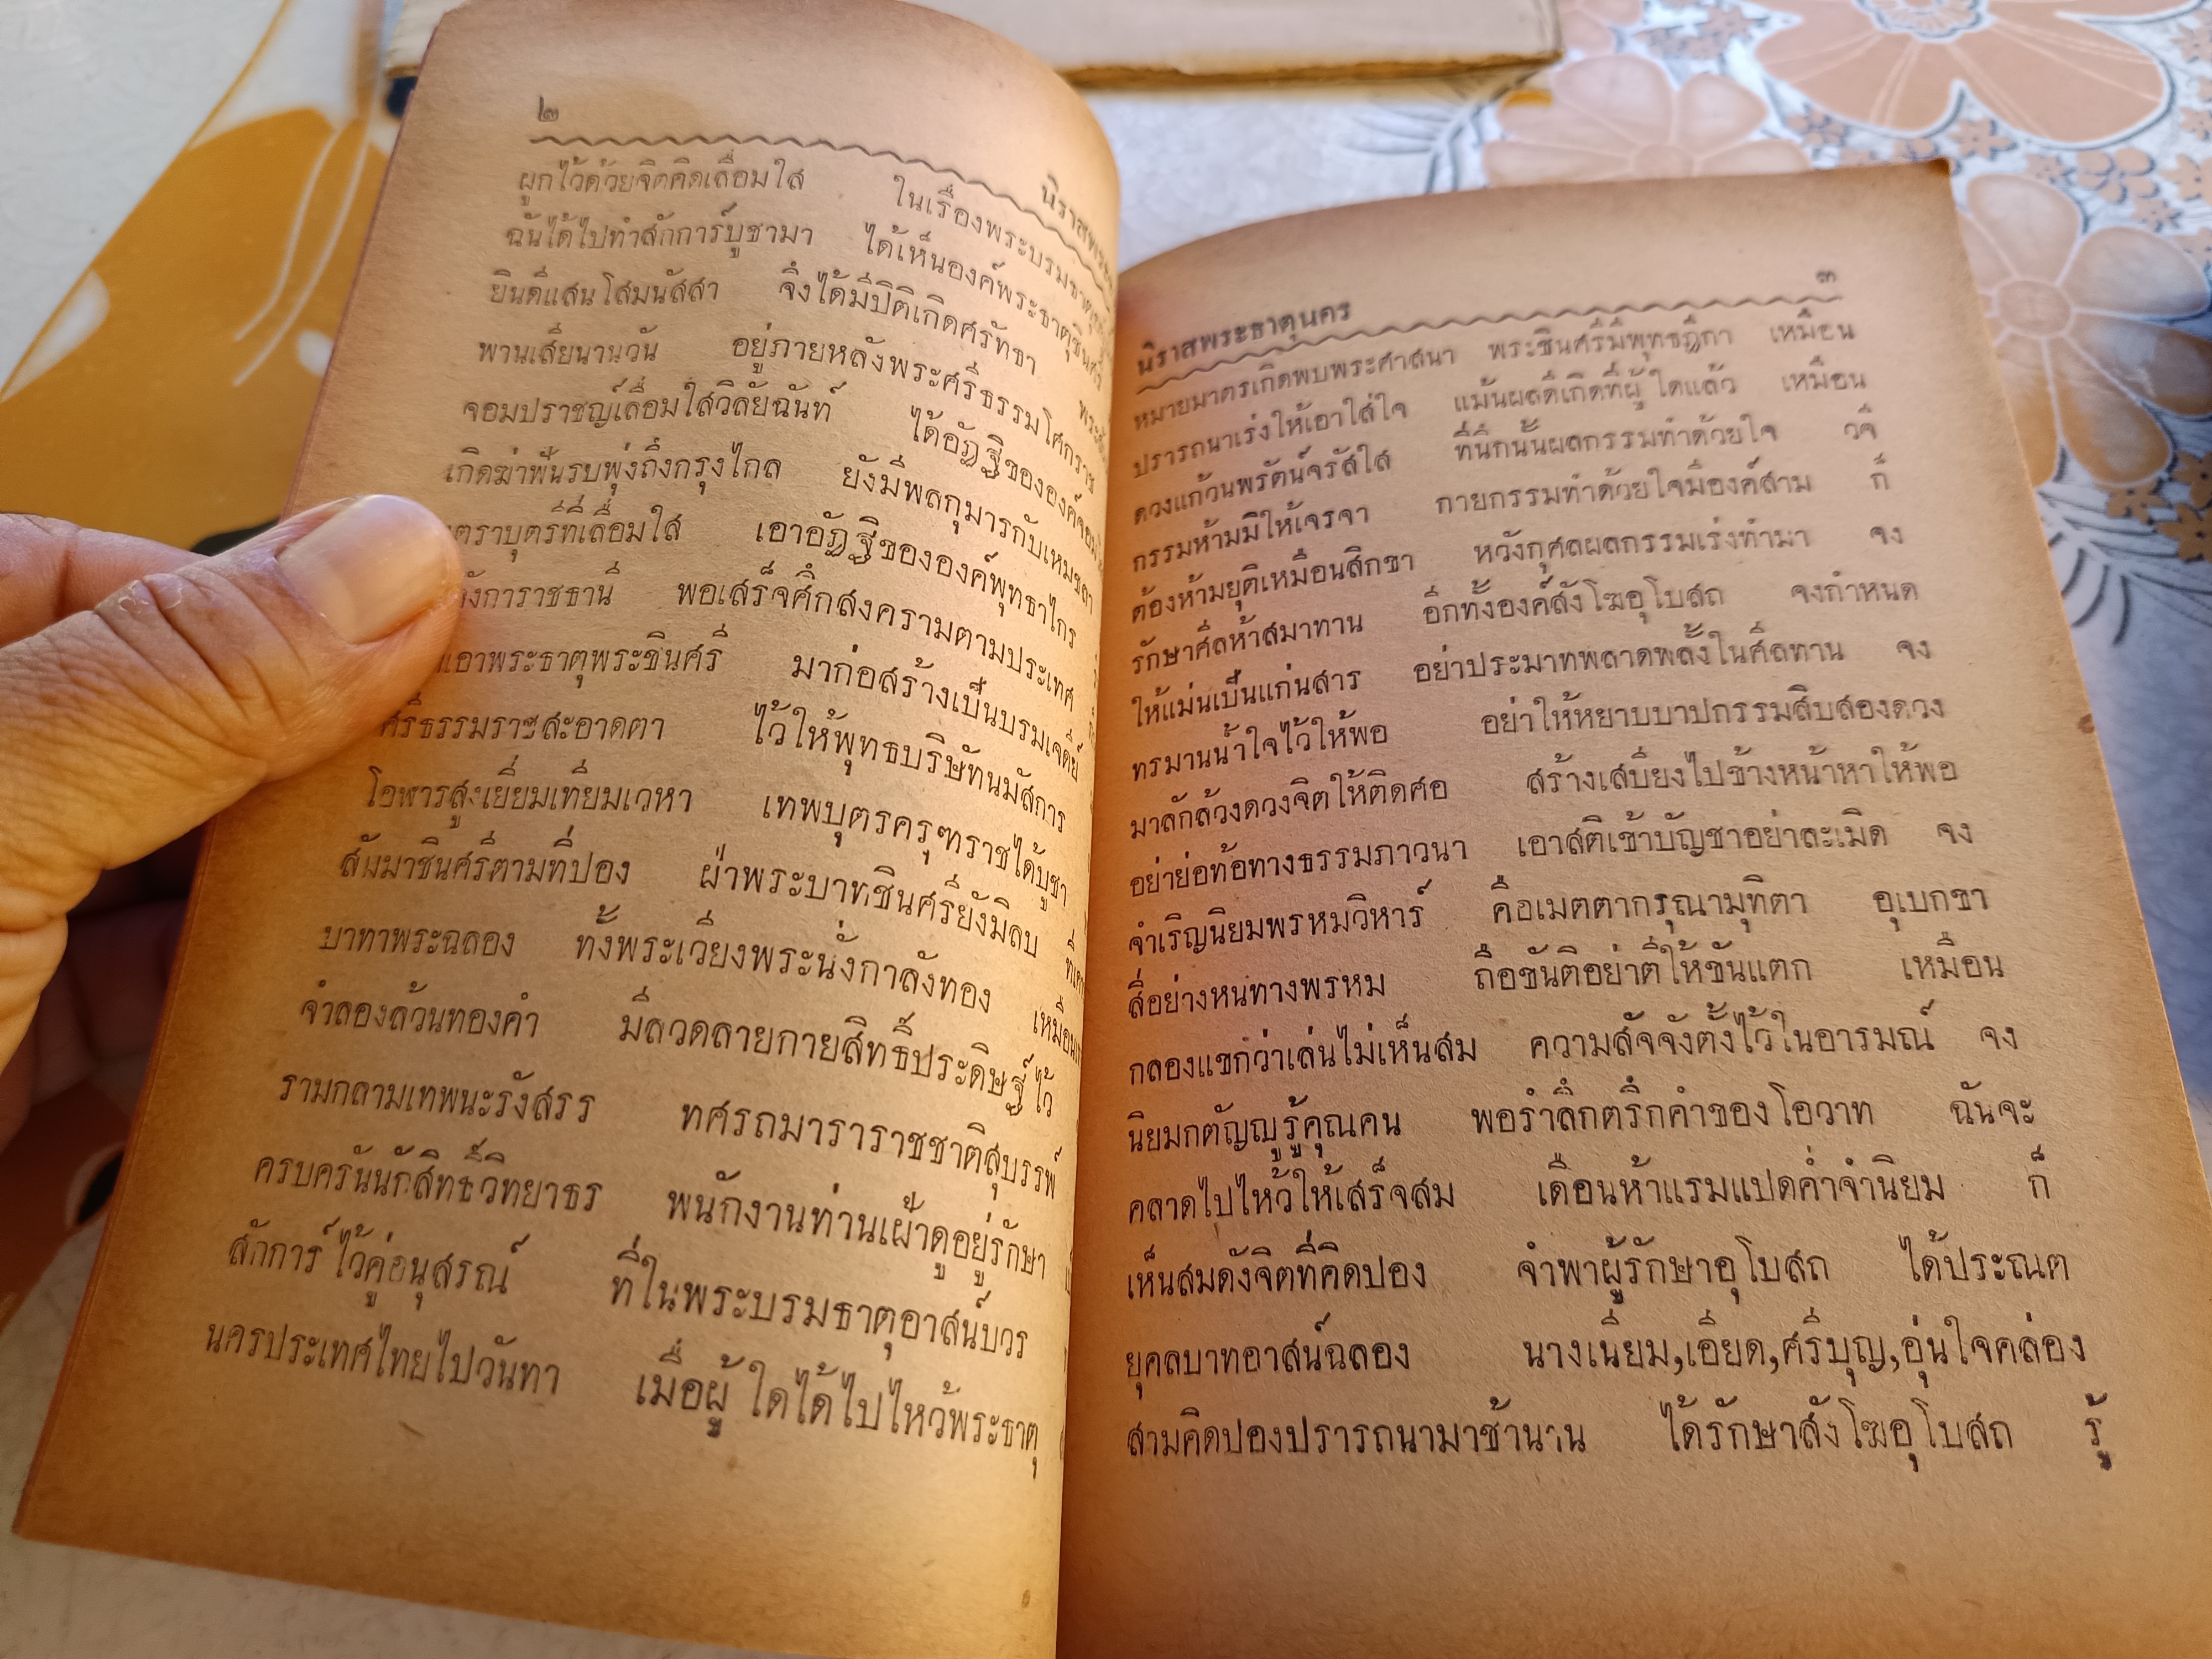 ๒
นิราสพระธาตุ
ผูกไว้ด้วยจิตคิดเลื่อมใส ในเรื่องพระบรมธาตุ
ฉันได้ไปทำสักการ์บูชามา ได้เห็นองค์พระธาตุชินศรี
ยินดีแสนโสมนัสสา จึ่งได้มีปิติเกิดศรัทธา
พานเสียนานวัน อยู่ภายหลังพระศรีธรรมโศกราช
จอมปราชญ์เลื่อมใสวิลัยฉันท์ ได้อัฏฐิขององค์จอม
เกิดฆ่าฟันรบพุ่งถึงกรุงไกล ยังมีพลกุมารกับเหมชลา
ตราบุตรีที่เลื่อมใส เอาอัฏฐิขององค์พุทธาไกร
ลังการาชธานี พอเสร็จศึกสงครามตามประเทศ
เอาพระธาตุพระชินศรี มาก่อสร้างเป็นบรมเจดีย์
ศรีธรรมราชสะอาดตา ไว้ให้พุทธบริษัทนมัสการ
โอฬารสูงเยี่ยมเทียมเวหา เทพบุตรครุฑราชได้บูชา
สัมมาชินศรีตามที่ปอง ฝ่าพระบาทชินศรียังมีลบ
บาทาพระฉลอง ทั้งพระเวียงพระนั่งกาลังทอง
จำลองล้วนทองคำ มีลวดลายกายสิทธิ์ประดิษฐ์ไว้
รามกลามเทพนะรังสรร ทศรถมาราราชชาติสุบรรพ์
ครบครันนักสิทธิ์วิทยาธร พนักงานท่านเฝ้าดูอยู่รักษา
สักการ์ไว้คู่อนุสรณ์ ที่ในพระบรมธาตุอาสน์บวร
นครประเทศไทยไปวันทา เมื่อผู้ใดได้ไปไหว้พระธาตุ
นิราสพระธาตุนคร ๓
หมายมาตรเกิดพบพระศาสนา พระชินศรีมีพุทธฎีกา เหมือน
ปรารถนาเร่งให้เอาใส่ใจ แม้นผลดีเกิดที่ผู้ใดแล้ว เหมือน
ดวงแก้วนพรัตน์จรัสใส ที่นึกนั้นผลกรรมทำด้วยใจ วจี
กรรมห้ามมิให้เจรจา กายกรรมทำด้วยใจมีองค์สาม ก็
ต้องห้ามยุติเหมือนสิกขา หวังกุศลผลกรรมเร่งทำมา จง
รักษาศีลห้าสมาทาน อีกทั้งองค์สังโฆอุโบสถ จงกำหนด
ให้แม่นเป็นแก่นสาร อย่าประมาทพลาดพลั้งในศีลทาน จง
ทรมานน้ำใจไว้ให้พอ อย่าให้หยาบบาปกรรมสิบสองดวง
มาลักล้วงดวงจิตให้ติดศอ สร้างเสบียงไปข้างหน้าหาให้พอ
อย่าย่อท้อทางธรรมภาวนา เอาสติเข้าบัญชาอย่าละเมิด จง
จำเริญนิยมพรหมวิหาร์ คือเมตตากรุณามุทิตา อุเบกขา
สี่อย่างหนทางพรหม ถือขันติอย่าตีให้ขันแตก เหมือน
กลองแขกว่าเล่นไม่เห็นสม ความสัจจังตั้งไว้ในอารมณ์ จง
นิยมกตัญญูรู้คุณคน พอรำลึกตรึกคำของโอวาท ฉันจะ
คลาดไปไหว้ให้เสร็จสม เดือนห้าแรมแปดค่ำจำนิยม ก็
เห็นสมดังจิตที่คิดปอง จำพาผู้รักษาอุโบสถ ได้ประณต
ยุคลบาทอาสน์ฉลอง นางเนี่ยม,เอียด,ศรีบุญ,อุ่นใจคล่อง
สามคิดปองปรารถนามาช้านาน ได้รักษาสังโฆอุโบสถ รู้